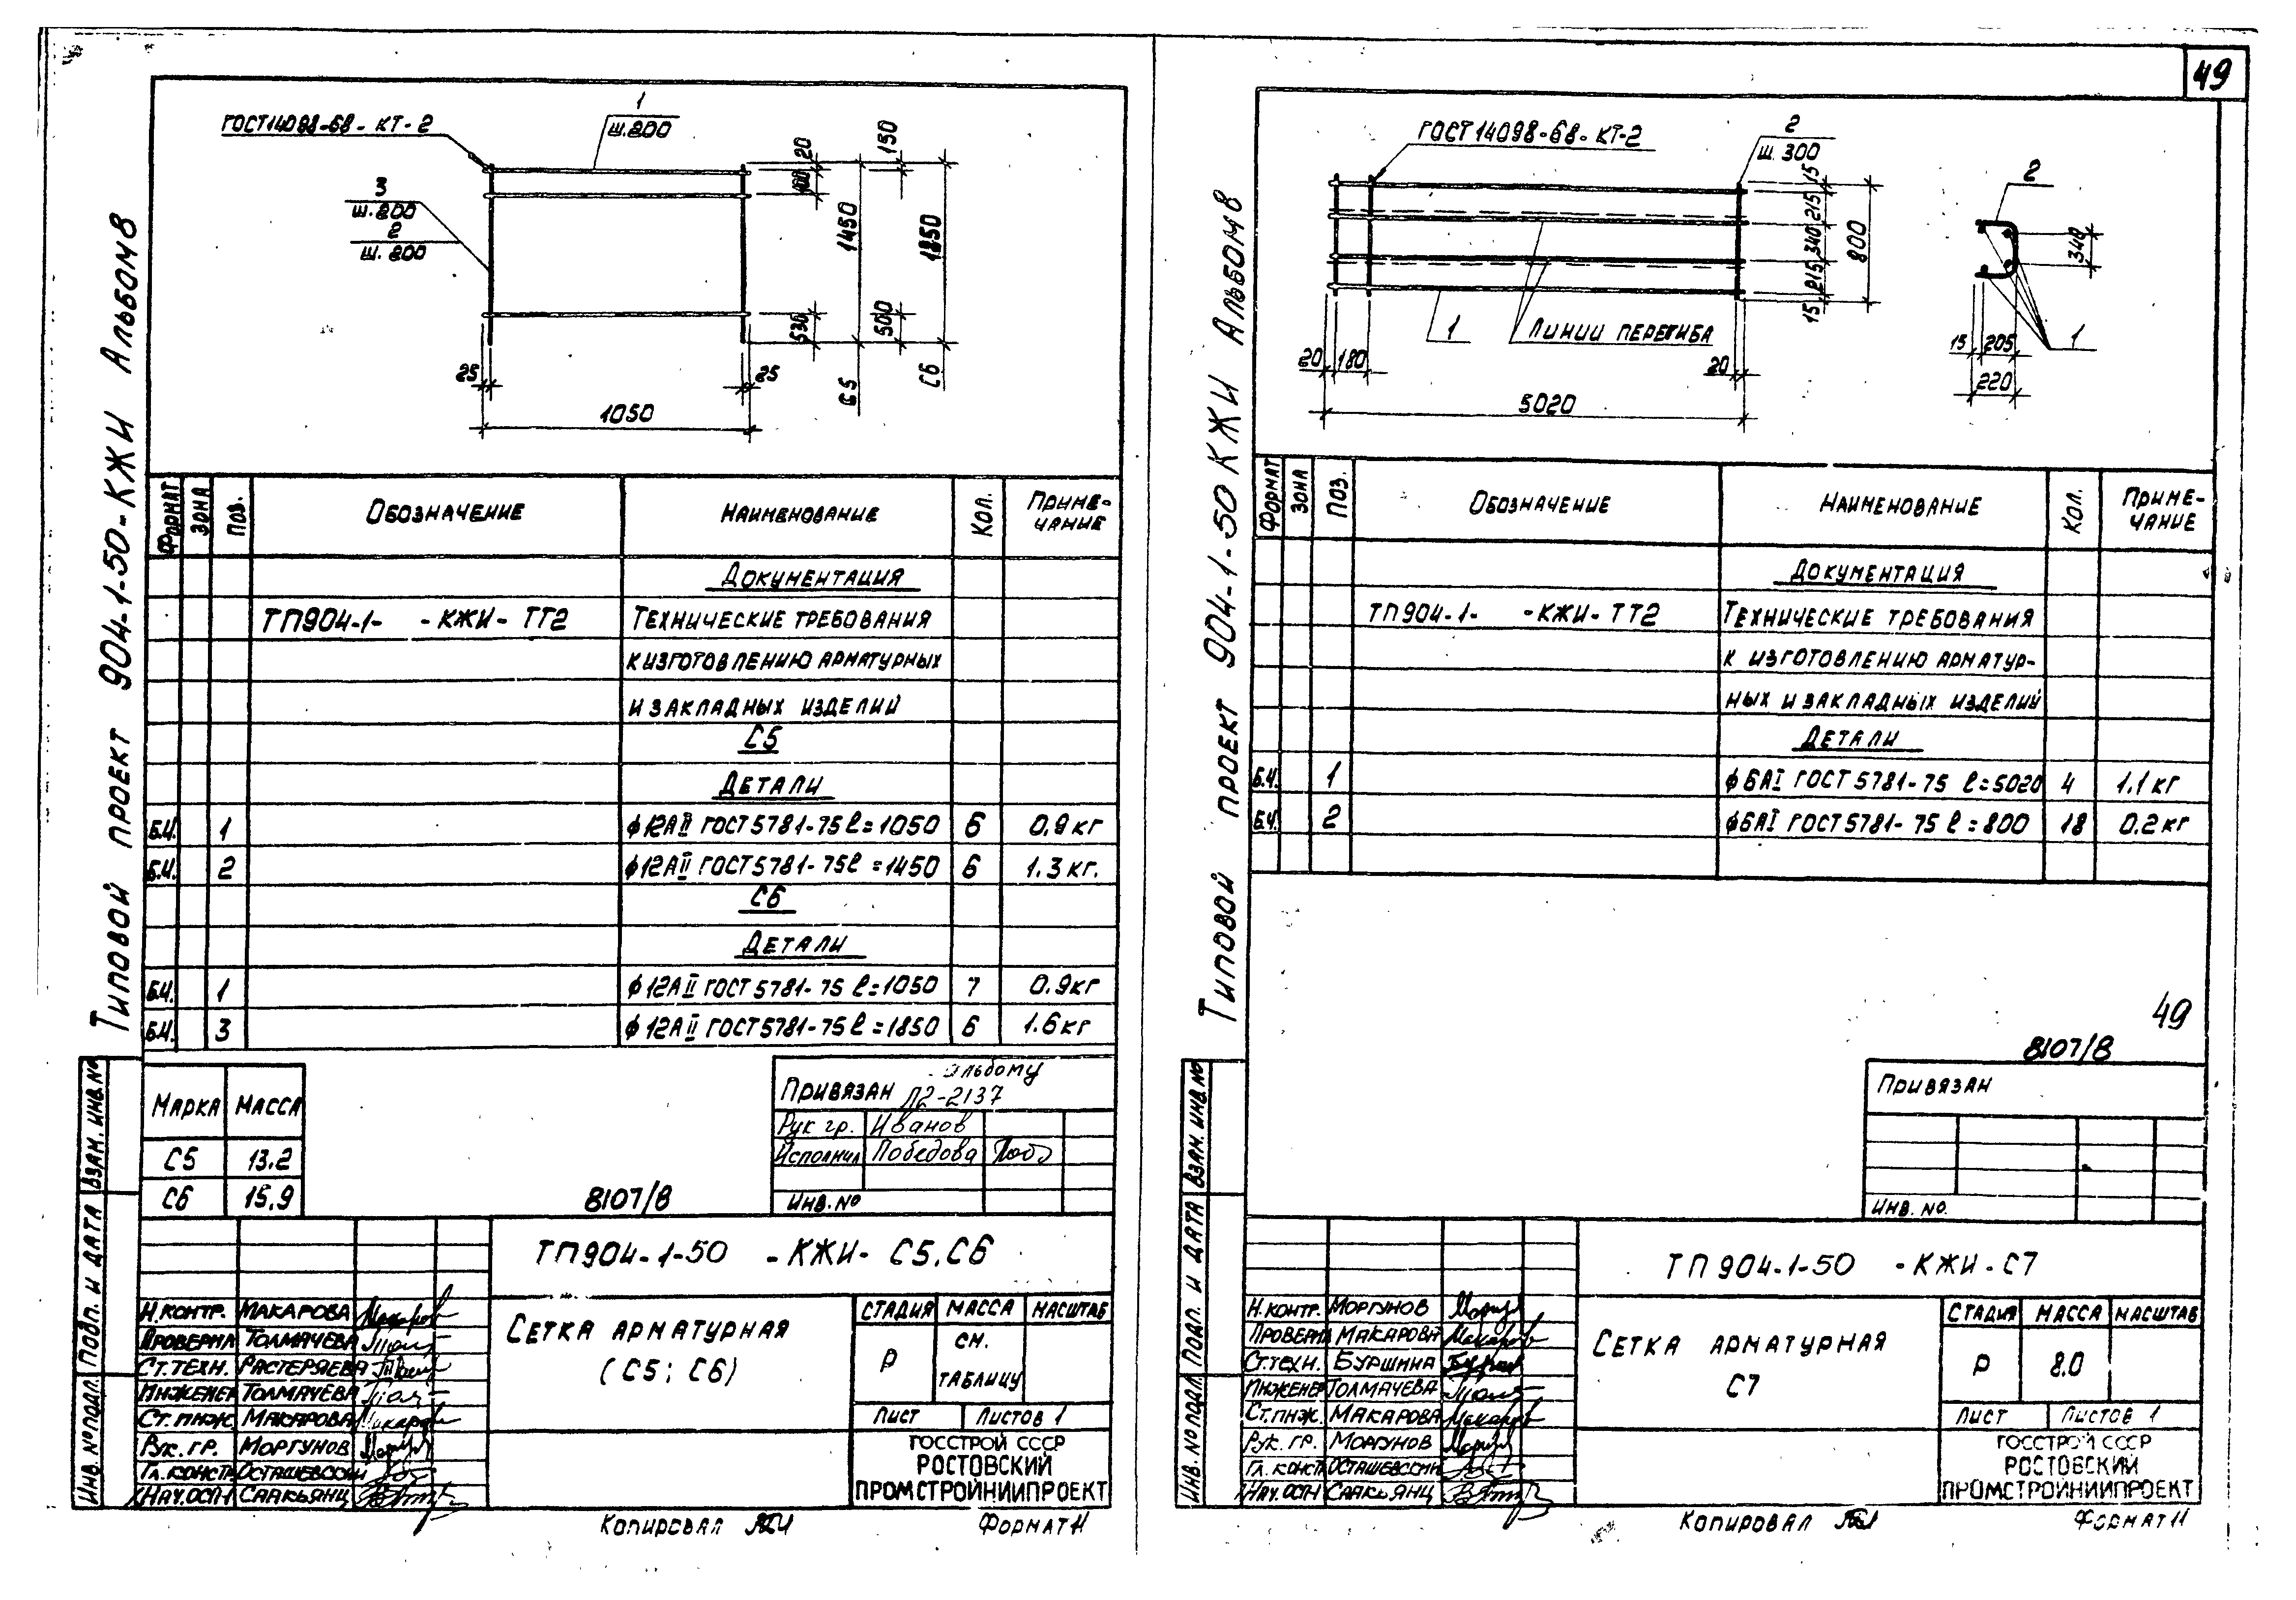 49
Типовой проект 904-1-50-КЖИ Альбом 8
ГОСТ 14098-68-КТ-2
1
ш.200
3
ш.200
2
ш.200
20
100
530
1450
С5
150
500
1850
С6
25
25
1050
Формат Зона Поз. Обозначение Наименование Кол. Приме-
чание
Документация
ТП904-1- -КЖИ-ТТ2 Технические требования
к изготовлению арматурных
и закладных изделий
С5
Детали
Б.Ч. 1 ф12АII ГОСТ 5781-75 ℓ=1050 6 0.9кг
Б.Ч. 2 ф12АII ГОСТ 5781-75 ℓ=1450 6 1.3кг.
С6
Детали
Б.Ч. 1 ф12АII ГОСТ 5781-75 ℓ=1050 7 0.9кг
Б.Ч. 3 ф12АII ГОСТ 5781-75 ℓ=1850 6 1.6кг
Марка Масса
С5 13.2
С6 15.9
8107/8
Привязан альбому
Л2-2137
Рук гр. Иванов
Исполнил Победова
Инв. №
ТП904-1-50 -КЖИ- С5,С6
Н.контр. Макарова
Проверил Толмачева
Ст.техн. Растеряева
Инженер Толмачева
Ст.инж. Макарова
Рук. гр. Моргунов
Гл. конст. Осташевский
Нач.осп Саакьянц
Сетка арматурная
(С5; С6)
Стадия Масса Масштаб
Р см.
таблицу
Лист Листов 1
Госстрой СССР
Ростовский
Промстройниипроект
Взам. инв. №
Подп. и дата
Инв. № подл.
Копировал Формат 11
Типовой проект 904-1-50 КЖИ Альбом 8
ГОСТ 14098-68-КТ-2
2
ш.300
15
215
340
215
15
800
1
Линии перегиба
20
180
20
5020
2
340
15
205
220
1
Формат Зона Поз. Обозначение Наименование Кол. Приме-
чание
Документация
ТП904-1- -КЖИ-ТТ2 Технические требования
к изготовлению арматур-
ных и закладных изделий
Детали
Б.Ч. 1 ф6АI ГОСТ 5781-75 ℓ=5020 4 1.1кг
Б.Ч. 2 ф6АI ГОСТ 5781-75 ℓ=800 18 0.2кг
49
8107/8
Привязан
Инв. №.
ТП904-1-50 -КЖИ-С7
Н.контр. Моргунов
Проверил Макарова
Ст.техн. Буршина
Инженер Толмачева
Ст.инж. Макарова
Рук. гр. Моргунов
Гл. конст. Осташевский
Нач.осп Саакьянц
Сетка арматурная
С7
Стадия Масса Масштаб
Р 8.0
Лист Листов 1
Госстрой СССР
Ростовский
Промстройниипроект
Взам. инв. №
Подп. и дата
Инв. № подл.
Копировал Формат 11